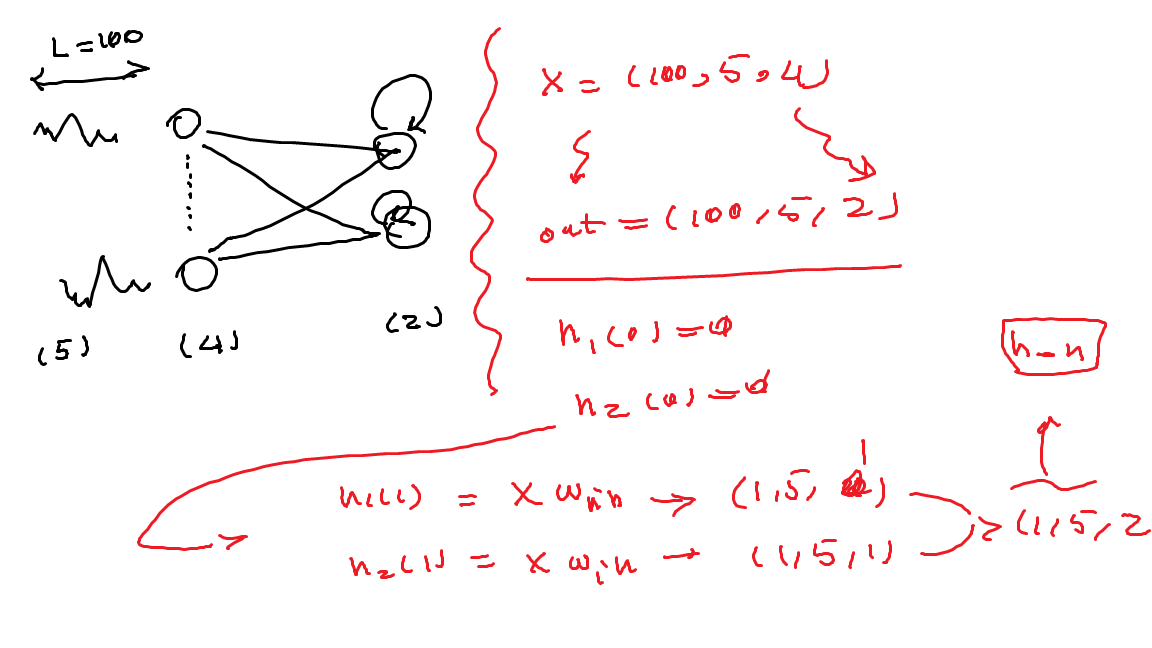 L = 100
(5)
(4)
(2)
X = (100, 5, 4)
out = (100, 5, 2)
h₁(0) = 0
h₂(0) = 0
h₁(1) = X win → (1, 5, 1)
h₂(1) = X win → (1, 5, 1)
(1, 5, 2
h_n